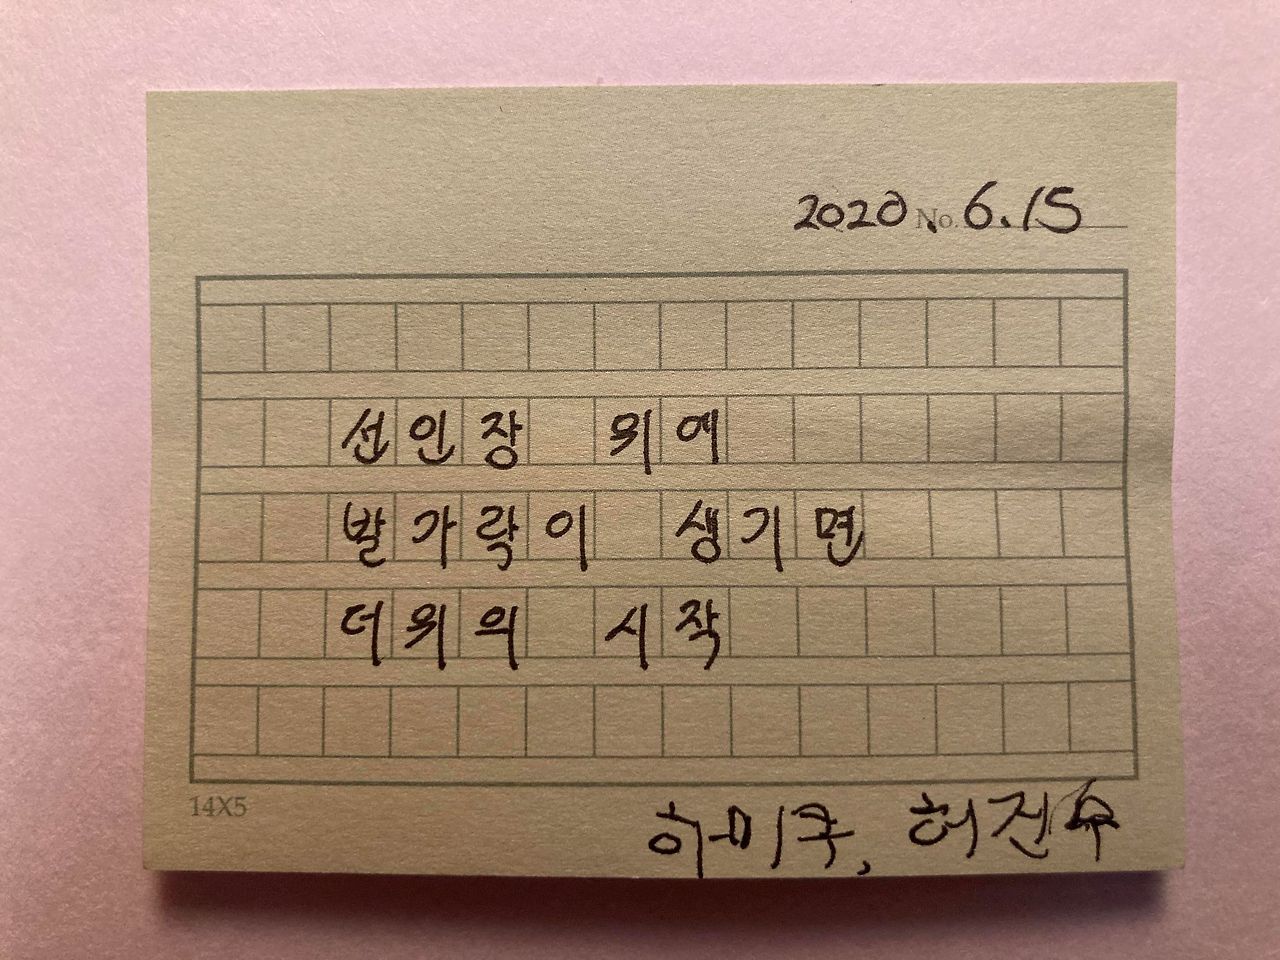 2020. No. 6.15
선인장 위에
발가락이 생기면
더위의 시작
14X5
하미쿡, 허진수